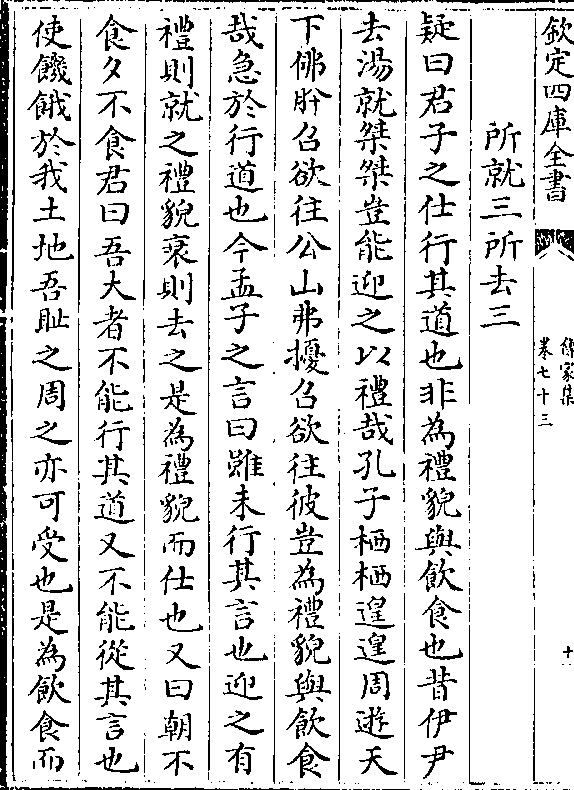 欽定四庫全書
傳家集
卷七十三
十
所就三所去三
疑曰君子之仕行其道也非為禮貌與飲食也昔伊尹
去湯就桀桀豈能迎之以禮哉孔子栖栖遑遑周遊天
下佛肸召欲往公山弗擾召欲往彼豈為禮貌與飲食
哉急於行道也今孟子之言曰雖未行其言也迎之有
禮則就之禮貌衰則去之是為禮貌而仕也又曰朝不
食夕不食君曰吾大者不能行其道又不能從其言也
使饑餓於我土地吾恥之周之亦可受也是為飲食而